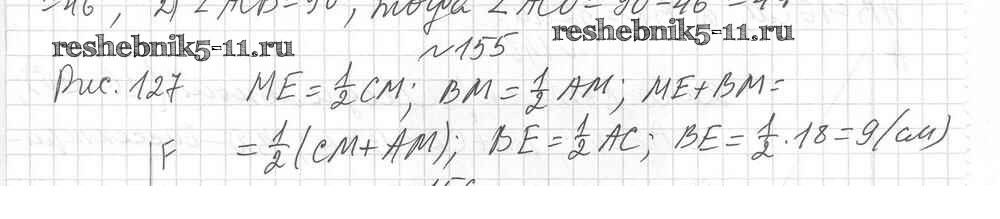 =46°, 2) ∠ACB=90°, тогда ∠ACD=90°-46°=44
reshebnik5-11.ru
reshebnik5-11.ru
№155
Рис. 127 ME=1/2 CM; BM=1/2 AM; ME+BM=
=1/2(CM+AM); BE=1/2 AC; BE=1/2·18=9(см)
F